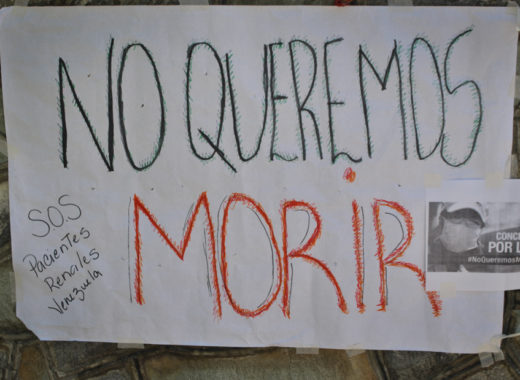 NO QUEREMOS
MORIR
SOS
Pacientes
Renales
Venezuela
POR
#NoQueremosM